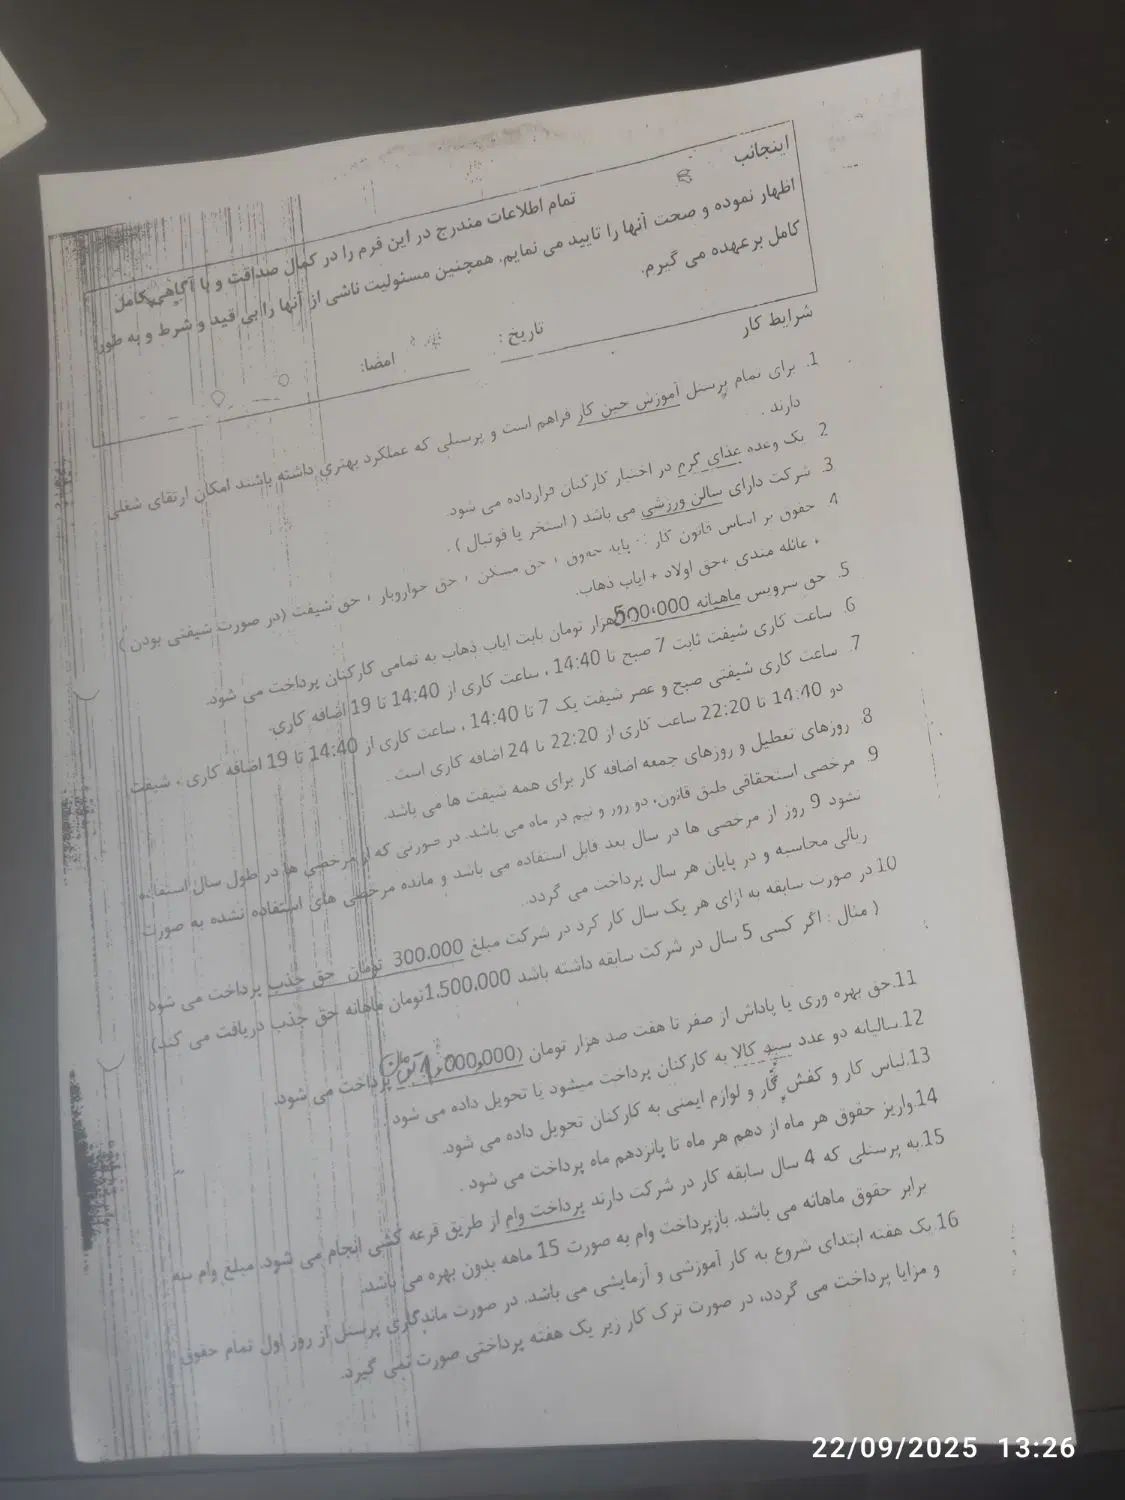 اینجانب
تمام اطلاعات مندرج در این فرم را در کمال صداقت و با آگاهی کامل
اظهار نموده و صحت آنها را تایید می نمایم. همچنین مسئولیت ناشی از آنها را بی قید و شرط و به طور
کامل بر عهده می گیرم.
تاریخ : امضا:
شرایط کار
1. برای تمام پرسنل آموزش حین کار فراهم است و پرسنلی که عملکرد بهتری داشته باشند امکان ارتقای شغلی
دارند .
2. یک وعده غذای گرم در اختیار کارکنان قرارداده می شود.
3. شرکت دارای سالن ورزشی می باشد ( استخر یا فوتبال ) .
4. حقوق بر اساس قانون کار : پایه حقوق + حق مسکن + حق خواروبار + حق شیفت (در صورت شیفتی بودن )
+ عائله مندی +حق اولاد + ایاب ذهاب.
5. حق سرویس ماهیانه 500،000 هزار تومان بابت ایاب ذهاب به تمامی کارکنان پرداخت می شود.
6. ساعت کاری شیفت ثابت 7 صبح تا 14:40 ، ساعت کاری از 14:40 تا 19 اضافه کاری.
7. ساعت کاری شیفتی صبح و عصر شیفت یک 7 تا 14:40 ، ساعت کاری از 14:40 تا 19 اضافه کاری ، شیفت
دو 14:40 تا 22:20 ساعت کاری از 22:20 تا 24 اضافه کاری است .
8. روزهای تعطیل و روزهای جمعه اضافه کار برای همه شیفت ها می باشد.
9. مرخصی استحقاقی طبق قانون، دو روز و نیم در ماه می باشد. در صورتی که از مرخصی ها در طول سال استفاده
نشود 9 روز از مرخصی ها در سال بعد قابل استفاده می باشد و مانده مرخصی های استفاده نشده به صورت
ریالی محاسبه و در پایان هر سال پرداخت می گردد.
10. در صورت سابقه به ازای هر یک سال کار کرد در شرکت مبلغ 300،000 تومان حق جذب پرداخت می شود
( مثال : اگر کسی 5 سال در شرکت سابقه داشته باشد 1،500،000تومان ماهانه حق جذب دریافت می کند)
11. حق بهره وری یا پاداش از صفر تا هفت صد هزار تومان (1،000،000 تومان) پرداخت می شود.
12. سالیانه دو عدد سبد کالا به کارکنان پرداخت میشود یا تحویل داده می شود
13. لباس کار و کفش کار و لوازم ایمنی به کارکنان تحویل داده می شود.
14. واریز حقوق هر ماه از دهم هر ماه تا پانزدهم ماه پرداخت می شود .
15. به پرسنلی که 4 سال سابقه کار در شرکت دارند پرداخت وام از طریق قرعه کشی انجام می شود. مبلغ وام سه
برابر حقوق ماهانه می باشد. بازپرداخت وام به صورت 15 ماهه بدون بهره می باشد.
16. یک هفته ابتدای شروع به کار آموزشی و آزمایشی می باشد. در صورت ماندگاری پرسنل از روز اول تمام حقوق
و مزایا پرداخت می گردد، در صورت ترک کار زیر یک هفته پرداختی صورت نمی گیرد.
22/09/2025 13:26